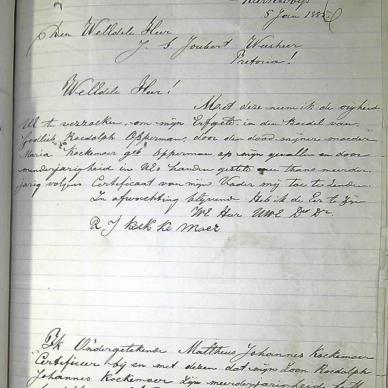 5 Juni 188
Den WelEdele Heer
J. S. Joubert Weesheer
Pretoria!
WelEdele Heer!
Met deze neem ik de vryheid
UE te verzoeken om mijn Erfgeld in den boedel van
Godlieb Roedolph Opperman, door den dood mijner moeder
Maria Kockemoer geb Opperman op mijn gevallen en door
minderjarigheid in UEs handen gesteld en thans meerder
jarig volgens Certificaat van mijn Vader mij toe te zenden.
In afwachting blyvend Heb ik de Eer te Zyn
WE Heer UWE Dw Dr
R J Kok ke Moer
Ik Ondergetekende Mattheus Johannes Kockemoer
Certificeer by en met dezen dat mijn Zoon Roedolph
Johannes Kockemoer zijn meerderjarigheid